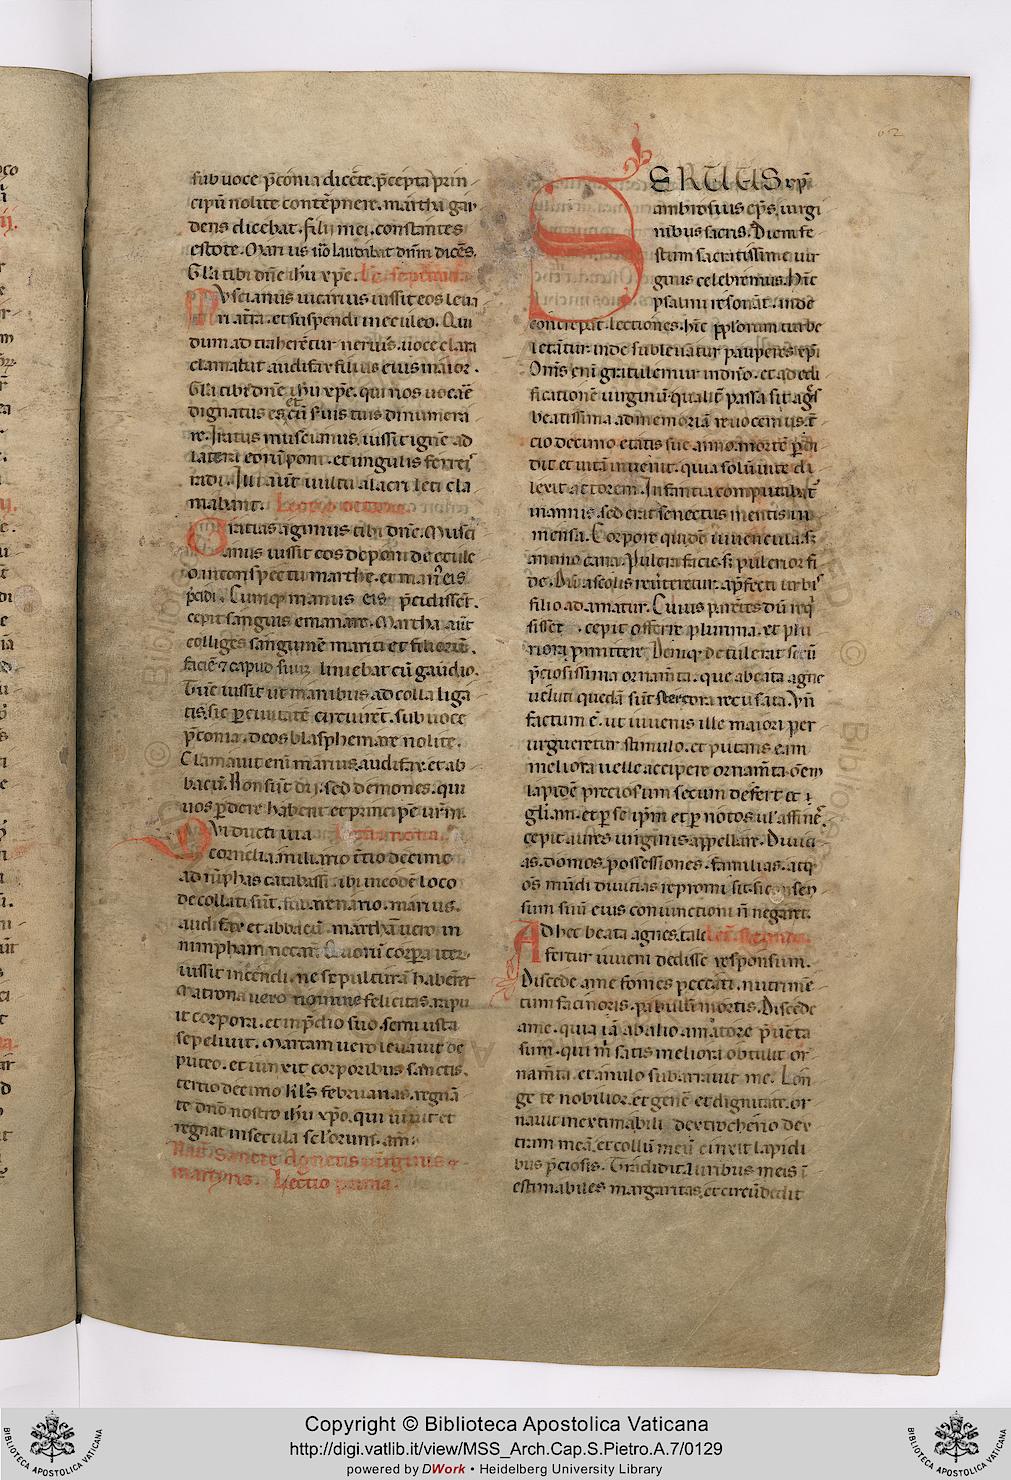 sub uoce p̄conia dicēte. p̄cepta prin
cipū nolite contēpnere. martha gau
dens dicebat. filij mei. constantes
estote. Marius u̅o laudabat dn̅m dicēs.
Gl̅a tibi dn̅e ih̅u xp̅e. Lc̅. septima.
Muscianus uicarius iussit eos leua
ri at̅ra. et suspendi in eculeo. Qui
dum ad traherētur neruis. uoce clara
clamabat audifax filius eius maior.
Gl̅a tibi dn̅e ih̅u xp̅e. qui nos uocare
dignatus es et cū suis tuis dinumera
re. Iratus muscianus. iussit ignē ad
latera eorū poni. et ungulis ferreis
radi. Illi aut̅ uultu alacri leti cla
mabant. Lectio octaua.
Gratias agimus tibi dn̅e. Musci
anus iussit eos deponi de ecule
o in conspectu marthe. et man̅ eis
p̄cidi. Cumq; manus eis p̄cidissēt.
cepit sanguis emanare. Martha aut̅
colliges sanguinē mariti et filiorū.
faciē ⁊ capud suum liniebat cū gaudio.
Tūc iussit ut manibus ad colla liga
tis. sic p̱ ciuitatē circuirēt. sub uoce
p̄conia. deos blasphemare nolite.
Clamauit eni̅ marius. audifax. et ab
bacū. Non sūt dij. sed demones. qui
uos p̱dere habent et principē ur̅m.
Qui ducti uia Lectio nona.
cornelia. miliario t̅tio decimo
ad nīphas catabassi. ibi in eodē loco
decollati sūt. sub arenario. marius.
audifax et abbacū. marthā uero in
nimpham necari. Quorū corpora iter
iussit incendi. ne sepulturā haberēt
Matrona uero nomine felicitas. rapu
it corpora. et in p̄dio suo semi usta
sepeliuit. Martam uero leuauit de
puteo. et iunxit corporibus sanctis.
tertio decimo kl̅s februarias. regnā
te dn̅o nostro ih̅u xp̅o. qui uiuit et
regnat in secula sclorum. am̅.
Nat̅. Sancte Agnetis uirginis ⁊
martyris. Lectio prima.
SERUUS xp̅i
ambrosius ep̅s. uirgi
nibus sacris. Diem fe
stum sacratissime uir
ginis celebremus. Hīc
psalmi resonāt. inde
concrepāt lectiones. hīc pp̅lorum turbe
letātur. inde subleuātur pauperes xp̅i
Om̅s eni̅ gratulemur in dn̅o. et ad edi
ficationē uirginū qualit̅ passa sit agn̅s
beatissima ad memoriā reuocemus. t̅
cio decimo etatis sue anno. mortē p̱di
dit et uitā inuenit. quia solū uite di
lexit actorem. Infantia computabat̅
in annis. sed erat senectus mentis in
mensa. Corpore quidē iuuencula. sȝ
animo cana. Pulcra facie. sȝ pulcrior fi
de. Dū a scolis reuteretur. a p̄fecti urbis
filio adamatur. Cuius parētes dū req̇
sissēt. cepit offerre plurima. et plu
riora promittere. Deniq; detulerat secū
p̄ciosissima ornam̅ta. que a beata agne
ueluti quedā sūt stercora recusata. Vn̅
factum e̅. ut iuuenis ille maiori per
urgueretur stimulo. et putans eam
meliora uelle accipere ornam̅ta. om̅em
lapidē preciosum secum defert et i
gl̅iam. et p̱ se ip̅m et p̱ notos ul̅ affines.
cepit aures uirginis appellare. Diuiti
as. domos. possessiones. familias. atq;
om̅s mūdi diuitias repromisit. si consen
sum suū eius coniunctioni n̅ negaret.
Ad hec beata agnes. tale Lct̅. secunda.
fertur iuueni dedisse responsum.
Discede a me fomes peccati. nutrimē
tum facinoris. pabulū mortis. Discede
a me. quia iā ab alio amatore p̄uēta
sum. qui m̅ satis meliora obtulit or
nam̅ta. et anulo subarrauit me. Lon
ge te nobilior. et genē et dignitate. or
nauit inextimabili dextrocherio dex
tram meā. et collū meū cinxit lapidi
bus p̄ciosis. Tradidit auribus meis i̅
estimabiles margaritas. et circūdedit
62
Copyright © Biblioteca Apostolica Vaticana
http://digi.vatlib.it/view/MSS_Arch.Cap.S.Pietro.A.7/0129
powered by DWork • Heidelberg University Library
BIBLIOTECA APOSTOLICA VATICANA
BIBLIOTECA APOSTOLICA VATICANA